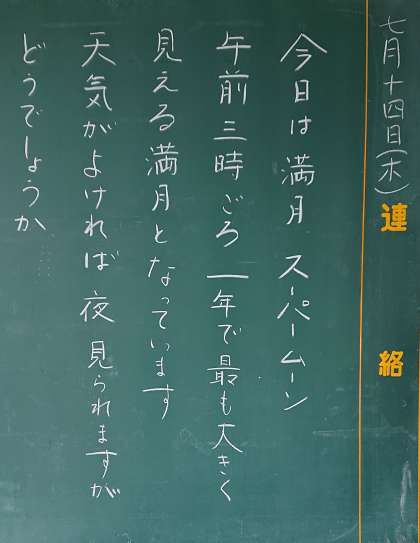 七月十四日(木)
連絡
今日は満月 スーパームーン
午前三時ごろ 一年で最も大きく
見える満月となっています
天気がよければ夜見られますが
どうでしょうか